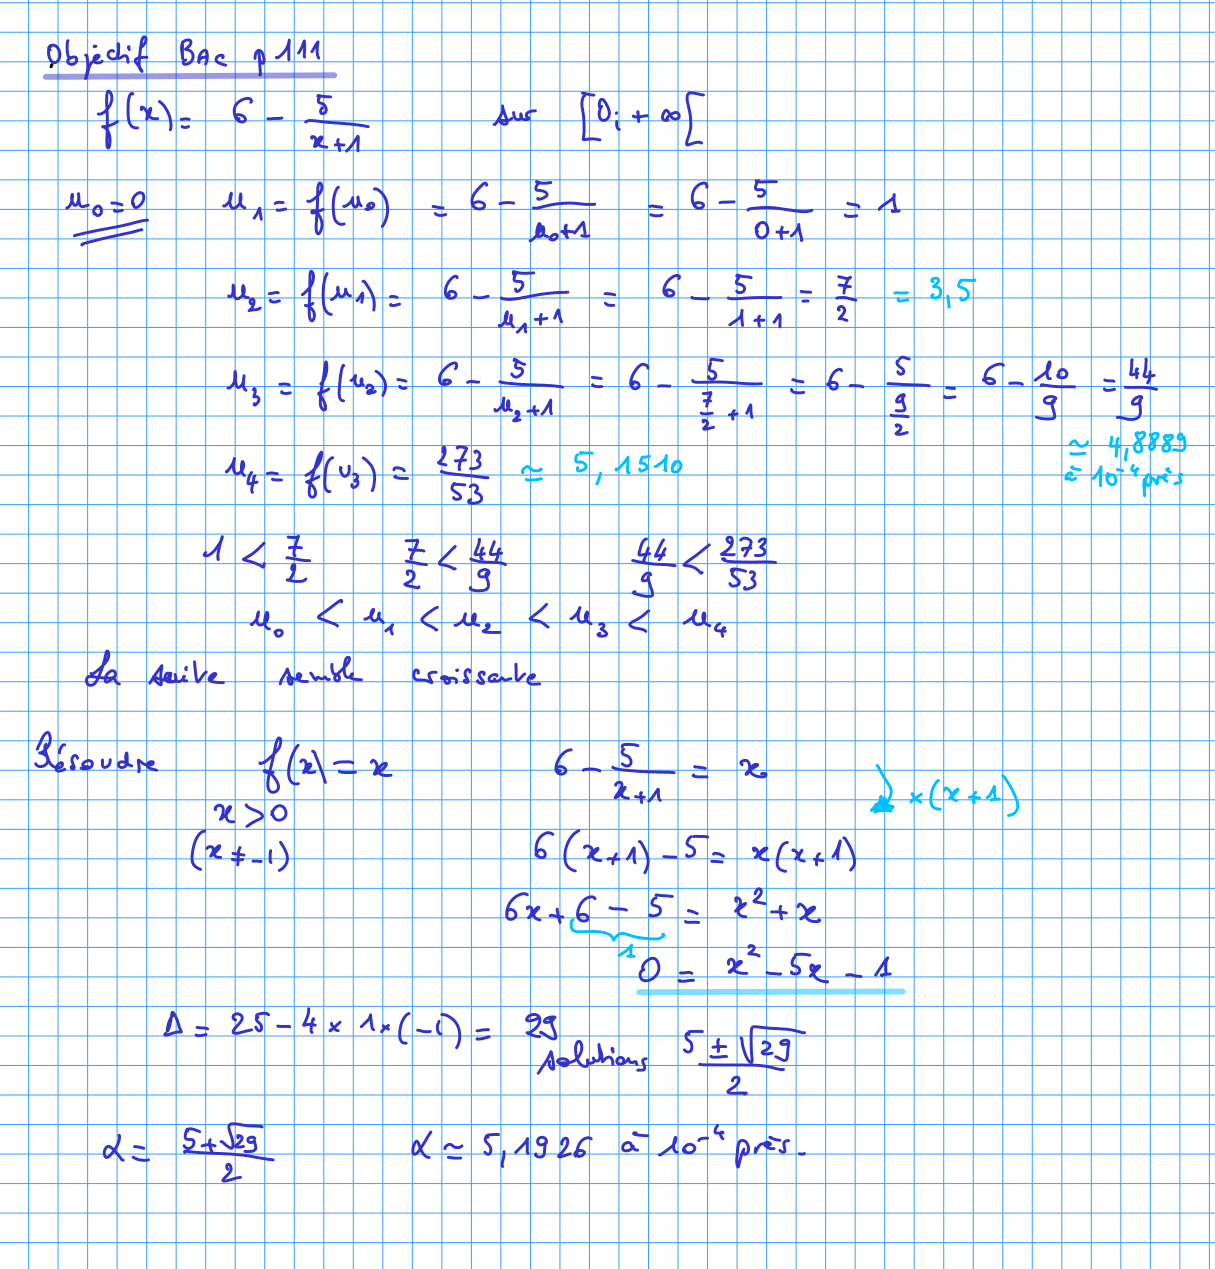 Objectif BAc p111
f(x) = 6 - 5/(x+1) sur [0; +∞[
u₀ = 0 u₁ = f(u₀) = 6 - 5/(u₀+1) = 6 - 5/(0+1) = 1
u₂ = f(u₁) = 6 - 5/(u₁+1) = 6 - 5/(1+1) = 7/2 = 3,5
u₃ = f(u₂) = 6 - 5/(u₂+1) = 6 - 5/(7/2 + 1) = 6 - 5/(9/2) = 6 - 10/9 = 44/9
≃ 4,8889
à 10⁻⁴ près
u₄ = f(u₃) = 273/53 ≃ 5,1510
1 < 7/2 7/2 < 44/9 44/9 < 273/53
u₀ < u₁ < u₂ < u₃ < u₄
La suite semble croissante
Résoudre f(x) = x 6 - 5/(x+1) = x
x > 0 ×(x+1)
(x ≠ -1) 6(x+1) - 5 = x(x+1)
6x + 6 - 5 = x² + x
1
0 = x² - 5x - 1
Δ = 25 - 4 × 1 × (-1) = 29
solutions (5 ± √29)/2
α = (5+√29)/2 α ≃ 5,1926 à 10⁻⁴ près.